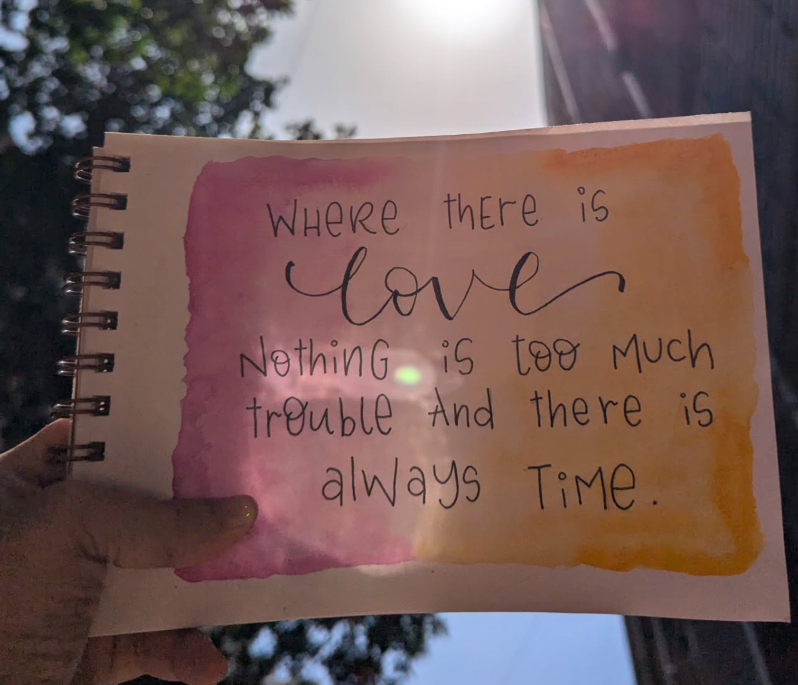 WHERE thERE is
love
NothiNG is too Much
trouble And there is
always TiME.